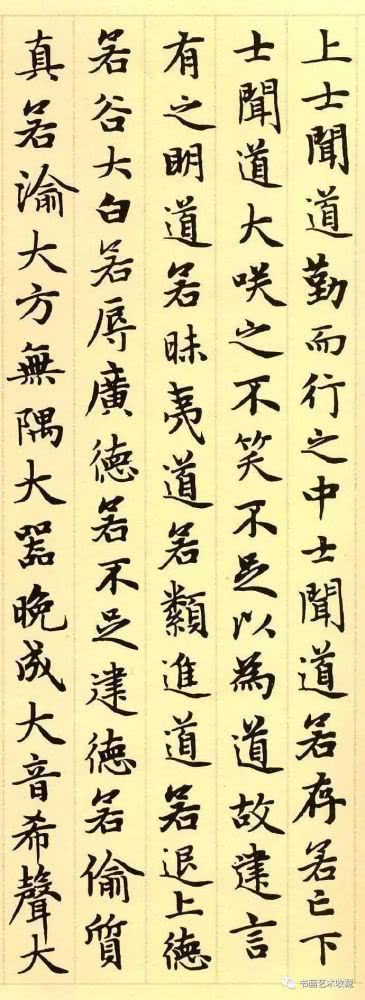 上士聞道勤而行之中士聞道若存若亡下
士聞道大咲之不笑不足以為道故建言
有之明道若昧夷道若纇進道若退上德
若谷大白若辱廣德若不足建德若偷質
真若渝大方無隅大器晚成大音希聲大
书画艺术收藏